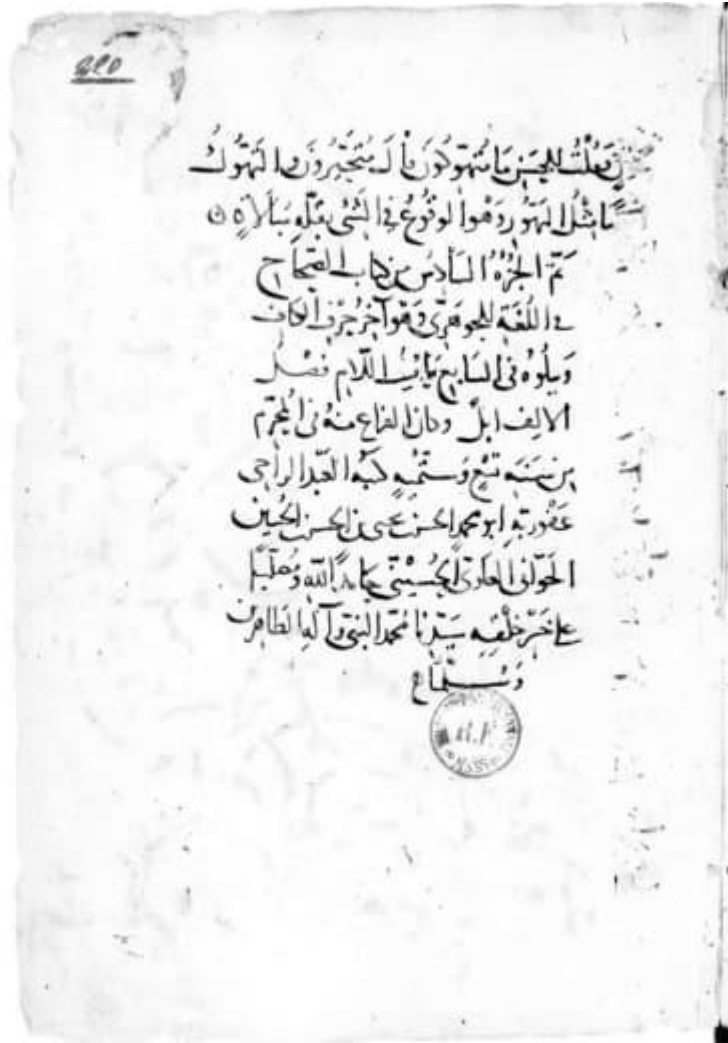 فقلت للحسن ما متهوكون قال متحيرون والتهوك
مثل التهور وهو الوقوع في الشئ بقلة مبالاة
تم الجزء السادس من كتاب الصحاح
في اللغة للجوهري وهو آخر حرف الكاف
ويتلوه في السابع باب اللام فصل
الالف ابل وكان الفراغ منه في المحرم
من سنة وستمية كتبه العبد الراجي
عفو ربه ابو محمد الحسن بن يحيى بن الحسن الحسين
العلوي الحسيني حامدا لله ومصليا
على خير خلقه سيدنا محمد النبي وآله الطاهرين
R.F